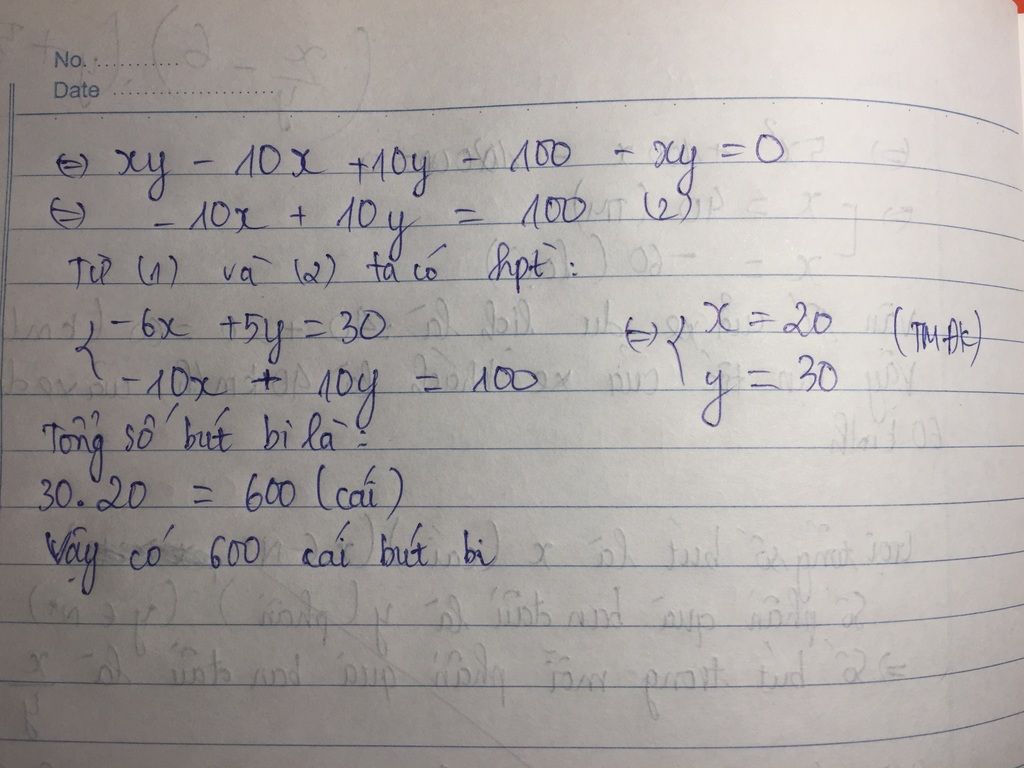 No. ............
Date ........................
⇔ xy - 10x + 10y - 100 - xy = 0
⇔ - 10x + 10y = 100 (2)
Từ (1) và (2) ta có hpt:
{ -6x + 5y = 30 ⇔ { x = 20 (TM.ĐK)
-10x + 10y = 100 y = 30
Tổng số bút bi là:
30.20 = 600 (cái)
Vậy có 600 cái bút bi